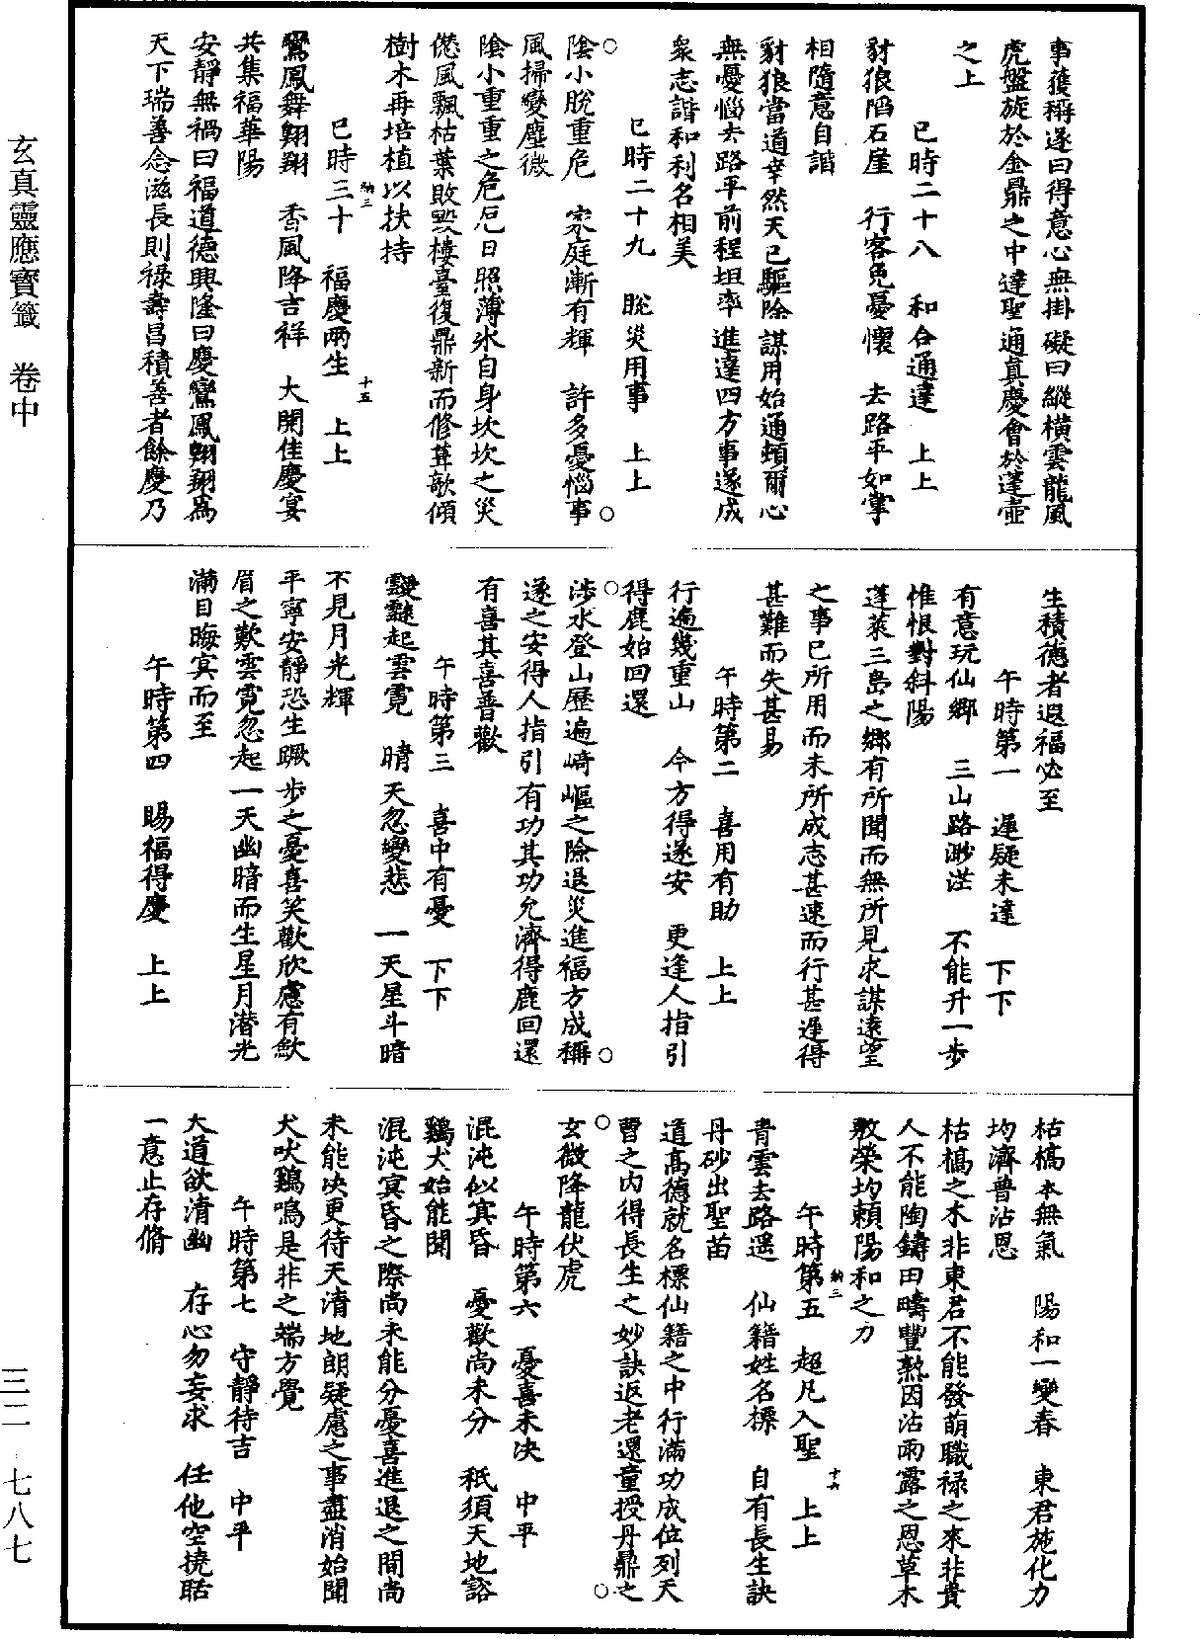 事獲稱遂曰得意心無掛礙曰縱橫雲龍風
虎盤旋於金鼎之中達聖通真慶會於蓬壺
之上
巳時二十八　和合通達　上上
豺狼陷石崖　行客免憂懷　去路平如掌
相隨意自諧
豺狼當道幸然天已驅除謀用始通頓爾心
無憂惱去路平前程坦率進達四方事遂成
衆志諧和利名相美
巳時二十九　脫災用事　上上
陰小脫重危　家庭漸有輝　許多憂惱事
風掃變塵微
陰小重重之危厄日照薄氷自身坎坎之災
愆風飄枯葉敗毀樓臺復鼎新而修葺欹傾
樹木再培植以扶持
巳時三十　福慶兩生　上上
納三　十五
鸞鳳舞翺翔　香風降吉祥　大開佳慶宴
共集福華陽
安靜無禍曰福道德興隆曰慶鸞鳳翺翔爲
天下瑞善念滋長則祿壽昌積善者餘慶乃
生積德者遐福必至
午時第一　遲疑未達　下下
有意玩仙鄉　三山路渺茫　不能升一步
惟恨對斜陽
蓬萊三島之鄉有所聞而無所見求謀遠望
之事巳所用而未所成志甚速而行甚遲得
甚難而失甚易
午時第二　喜用有助　上上
行遍幾重山　今方得遂安　更逢人指引
得鹿始回還
涉水登山歷遍崎嶇之險退災進福方成稱
遂之安得人指引有功其功允濟得鹿回還
有喜其喜普歡
午時第三　喜中有憂　下下
靉靆起雲霓　晴天忽變悲　一天星斗暗
不見月光輝
平寧安靜恐生蹶步之憂喜笑歡欣慮有歛
眉之歎雲霓忽起一天幽暗而生星月潛光
滿目晦冥而至
午時第四　賜福得慶　上上
枯槁本無氣　陽和一變春　東君施化力
均濟普沾恩
枯槁之木非東君不能發萌職祿之來非貴
人不能陶鑄田疇豐熟因沾雨露之恩草木
敷榮均賴陽和之力
午時第五　超凡入聖　上上
納三　十六
青雲去路遥　仙籍姓名標　自有長生訣
丹砂出聖苗
道高德就名標仙籍之中行滿功成位列天
曹之內得長生之妙訣返老還童授丹鼎之
玄微降龍伏虎
午時第六　憂喜未決　中平
混沌似冥昏　憂歡尚未分　秖須天地豁
鷄犬始能聞
混沌冥昏之際尚未能分憂喜進退之間尚
未能決更待天清地朗疑慮之事盡消始聞
犬吠鷄鳴是非之端方覺
午時第七　守靜待吉　中平
大道欲清幽　存心勿妄求　任他空撓聒
一意止存脩
玄真靈應寶籤　卷中
三二　七八七